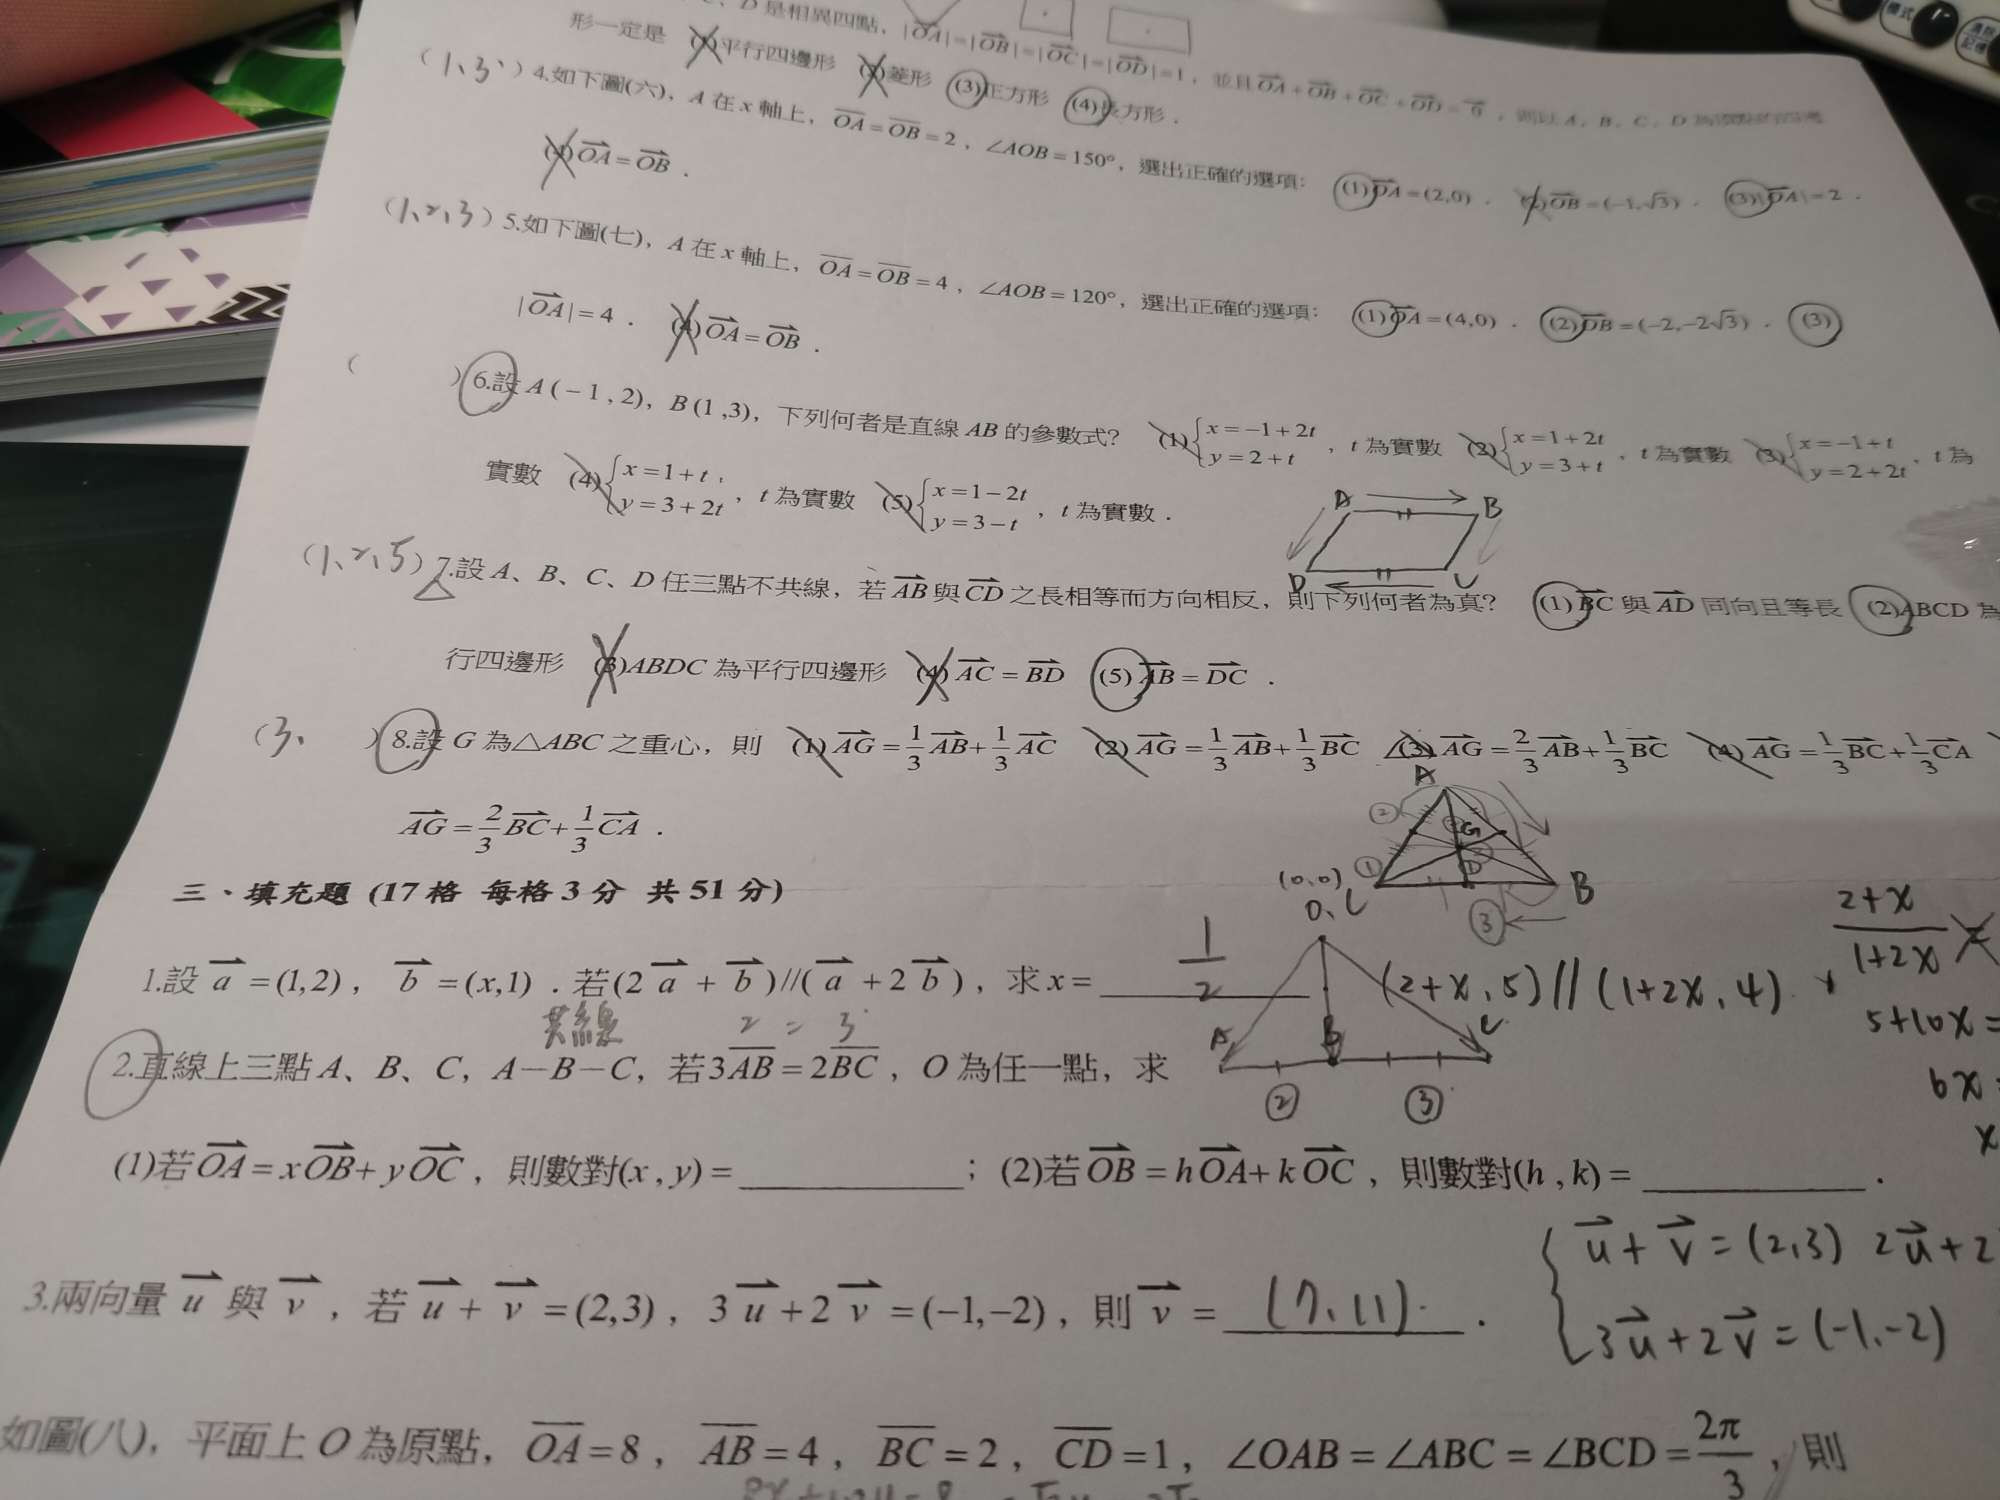 D 是相異四點，|OA|=|OB|=|OC|=|OD|=1，並且OA+OB+OC+OD=0，則以 A、B、C、D 為
形一定是 (1)平行四邊形 (2)菱形 (3)正方形 (4)長方形．
(1、3、) 4.如下圖(六)，A 在 x 軸上，OA=OB=2，∠AOB=150°，選出正確的選項： (1)OA=(2,0)． (2)OB=(−1,√3)． (3)|OA|=2．
(4)OA=OB．
(1、2、3) 5.如下圖(七)，A 在 x 軸上，OA=OB=4，∠AOB=120°，選出正確的選項： (1)OA=(4,0)． (2)OB=(−2,−2√3)． (3)
|OA|=4． (4)OA=OB．
( ) 6.設 A(−1,2)，B(1,3)，下列何者是直線 AB 的參數式？ (1){x=−1+2t y=2+t，t 為實數 (2){x=1+2t y=3+t，t 為實數 (3){x=−1+t y=2+2t，t 為
實數 (4){x=1+t， y=3+2t，t 為實數 (5){x=1−2t y=3−t，t 為實數．
A B
D C
(1、2、5) 7.設 A、B、C、D 任三點不共線，若 AB 與 CD 之長相等而方向相反，則下列何者為真？ (1)BC 與 AD 同向且等長 (2)ABCD 為
行四邊形 (3)ABDC 為平行四邊形 (4)AC=BD (5)AB=DC．
(3、 ) 8.設 G 為△ABC 之重心，則 (1)AG=1/3AB+1/3AC (2)AG=1/3AB+1/3BC (3)AG=2/3AB+1/3BC (4)AG=1/3BC+1/3CA
AG=2/3BC+1/3CA．
A
② G
① C B
③
三、填充題 (17 格 每格 3 分 共 51 分)
(0,0)
O
1.設 a=(1,2)， b=(x,1)．若(2a+b)//(a+2b)，求 x= 1/2 (2+x,5)//(1+2x,4)
2+x/1+2x
5+10x=
6x=
x
共線 2=3
2.直線上三點 A、B、C，A－B－C，若3AB=2BC，O 為任一點，求
A B C
② ③
(1)若OA=xOB+yOC，則數對(x,y)= ；(2)若OB=hOA+kOC，則數對(h,k)= ．
3.兩向量 u 與 v，若 u+v=(2,3)，3u+2v=(−1,−2)，則 v= (7,11)．
{u+v=(2,3) 2u+2
3u+2v=(-1,-2)
如圖(八)，平面上 O 為原點，OA=8，AB=4，BC=2，CD=1，∠OAB=∠ABC=∠BCD=2π/3，則